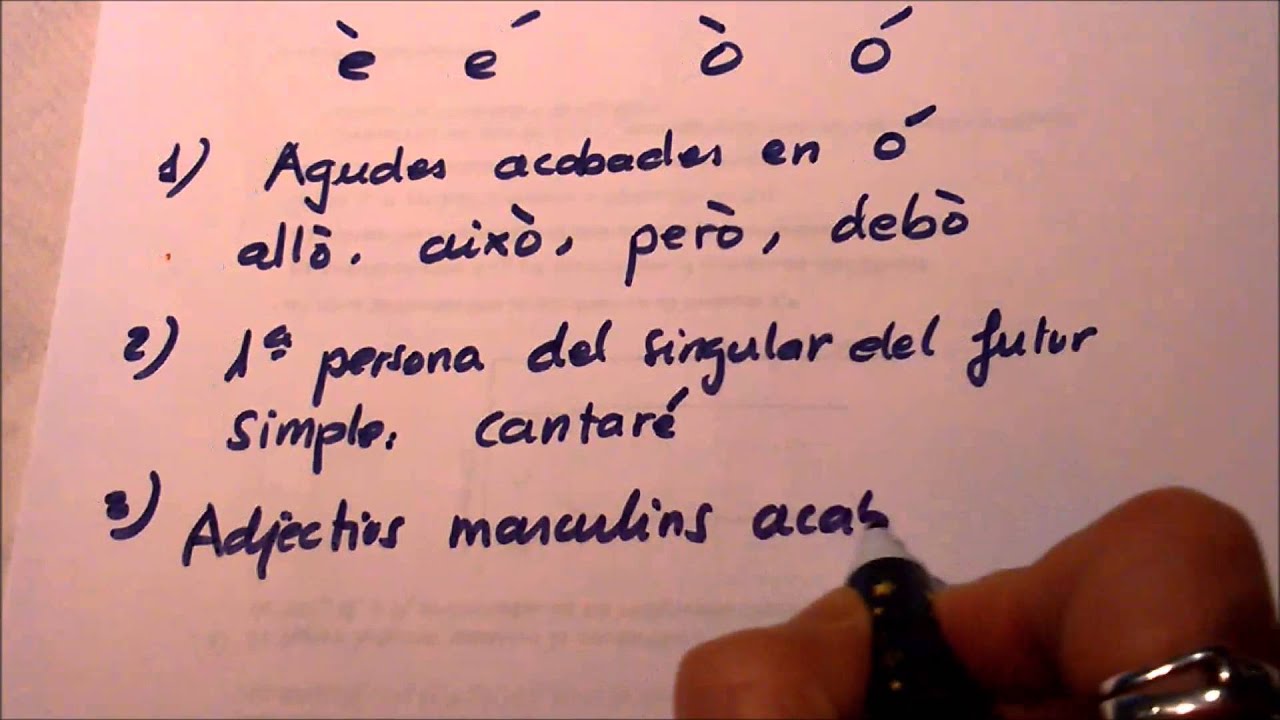 è é ò ó
1) Agudes acabades en ó
allò. això, però, debò
2) 1ª persona del singular del futur
simple. cantaré
3) Adjectius masculins acab